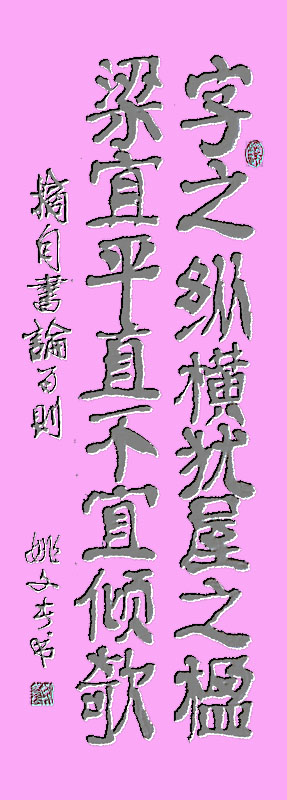 字之纵横犹屋之楹
梁宜平直不宜倾欹
摘自書論百則
姚文